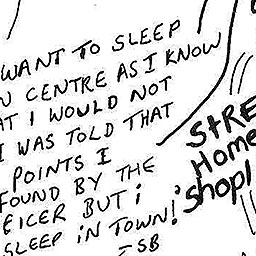 WANT TO SLEEP
N CENTRE AS I KNOW
AT I WOULD NOT
I WAS TOLD THAT
POINTS I
FOUND BY THE
EICER BUT i
SLEEP iN TOWN!
SB
StRE
Home
Shopl